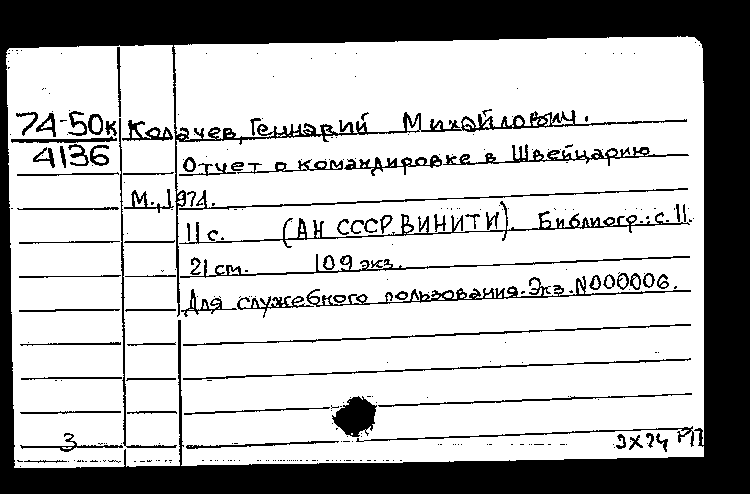 74-50к Колачев, Геннадий Михайлович.
4136 Отчет о командировке в Швейцарию.
М., 1974.
11 с. (АН СССР. ВИНИТИ). Библиогр.: с. 11.
21 см. 109 экз.
Для служебного пользования. Экз. N000006.
3